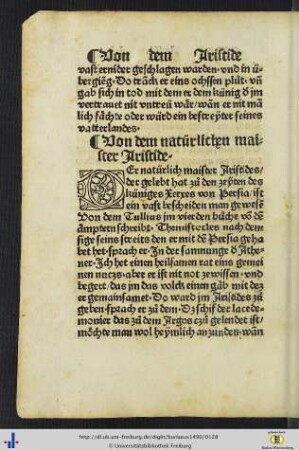 ¶Von dem Aristide
vast ernider geschlagen warden. vnd in ü-
bergieng. Do tranck er eins ochssen plůt. vn̄
gab sich in tod mit dem er dem künig d̄ jm
vertrauet nit vntreü wär/ wan̄ er nit mā
lich fächte oder würd ein bestreyter seines
vatterlandes.
¶Von dem natürlichen mai-
ster Aristide.
DEr natürlich maister Aristides/
der gelebt hat zů den zeyten des
küniges Xerxes von Persia/ ist
ein vast bescheiden man gewesē
Von dem Tullius jm vierden bůchs vō dē
ämptern schreibt. Themistocles nach dem
sige seins streits den er mit dē Persia geha
bet het. sprach er. In der samnunge d̄ Athe-
ner. Ich het einen heilsamen rat eins gemei
nen nutzs. aber er ist nit not zewissen. vnd
begert/ das jm das volck einen gäb mit dez
er gemainsamet. Do ward jm Aristides zů
geben. sprach er zů dem. Dz schif der lacede-
monier das zů dem Argos czů gelendet ist/
möchte man wol heymlich anzünden. wan̄
http://dl.ub.uni-freiburg.de/diglit/burlaeus1490/0128
© Universitätsbibliothek Freiburg